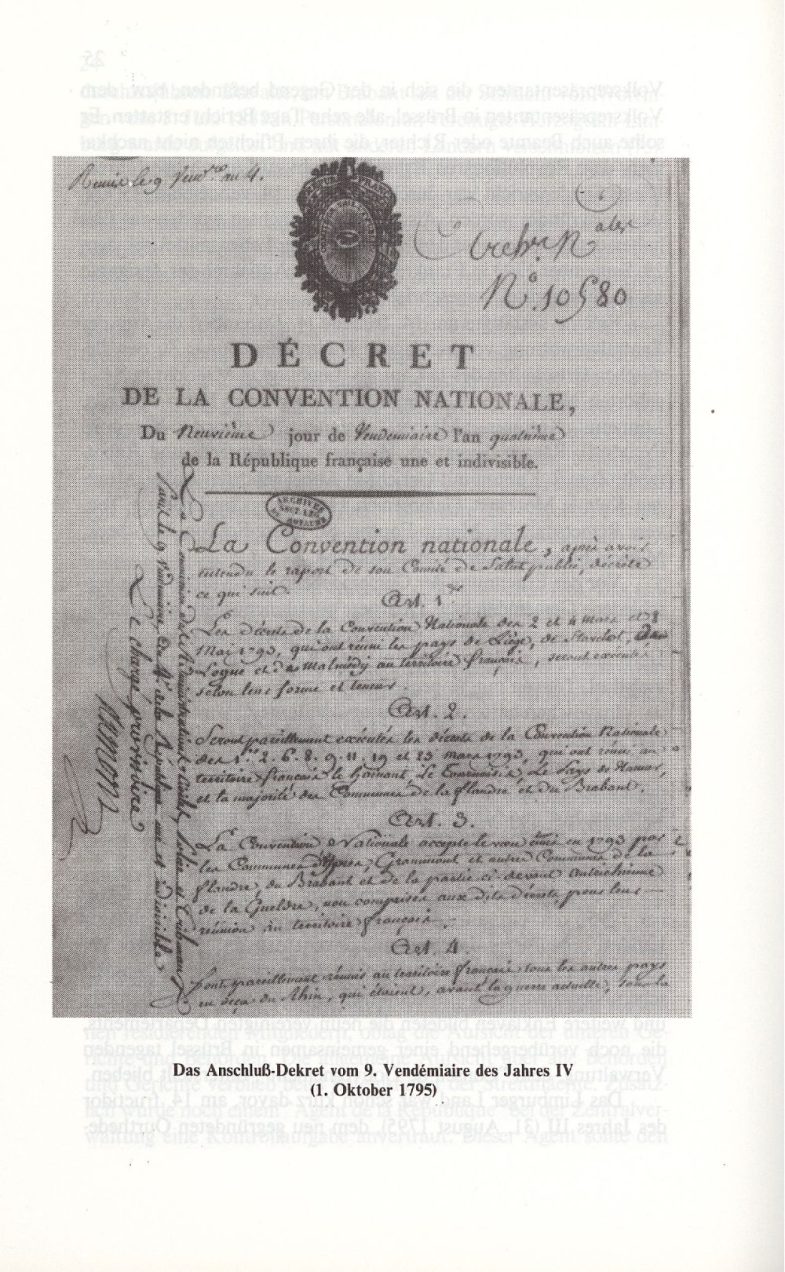 Remis le 9 Vend.re an 4.
N.o 10580
DÉCRET
DE LA CONVENTION NATIONALE,
Du Neuvième jour de Vendemiaire l'an quatrième
de la République française une et indivisible.
ARCHIVES
DU ROYAUME
La Convention nationale, après avoir
entendu le raport de son Comité de Salut public, décrète
ce qui suit.
Art. 1.er
Les décrets de la Convention Nationale des 2 et 4 mars et 8
Mai 1793, qui ont réuni les pays de Liège, de Stavelot, de
Logne et de Malmédy au territoire français, seront exécutés
selon leur forme et teneur.
Art. 2.
Seront pareillement exécutés les décrets de la Convention Nationale
des 1.er 2. 6. 8. 9. 11. 19 et 23 mars 1793, qui ont réuni au
territoire français le hainaut, Le Tournaisis, Le Pays de Namur,
et la majorité des Communes de la flandre et du Brabant.
Art. 3.
La Convention Nationale accepte le vœu émis en 1793 par
les Communes d'Ypres, Grammont et autres Communes de la
flandre, du Brabant et de la partie ci-devant autrichienne
de la Gueldre, non comprises aux dits décrets, pour leur
réunion au territoire français.
Art. 4.
Sont pareillement réunis au territoire français tous les autres pays
en deça du Rhin, qui étaient, avant la guerre actuelle, sous la
Das Anschluß-Dekret vom 9. Vendémiaire des Jahres IV
(1. Oktober 1795)